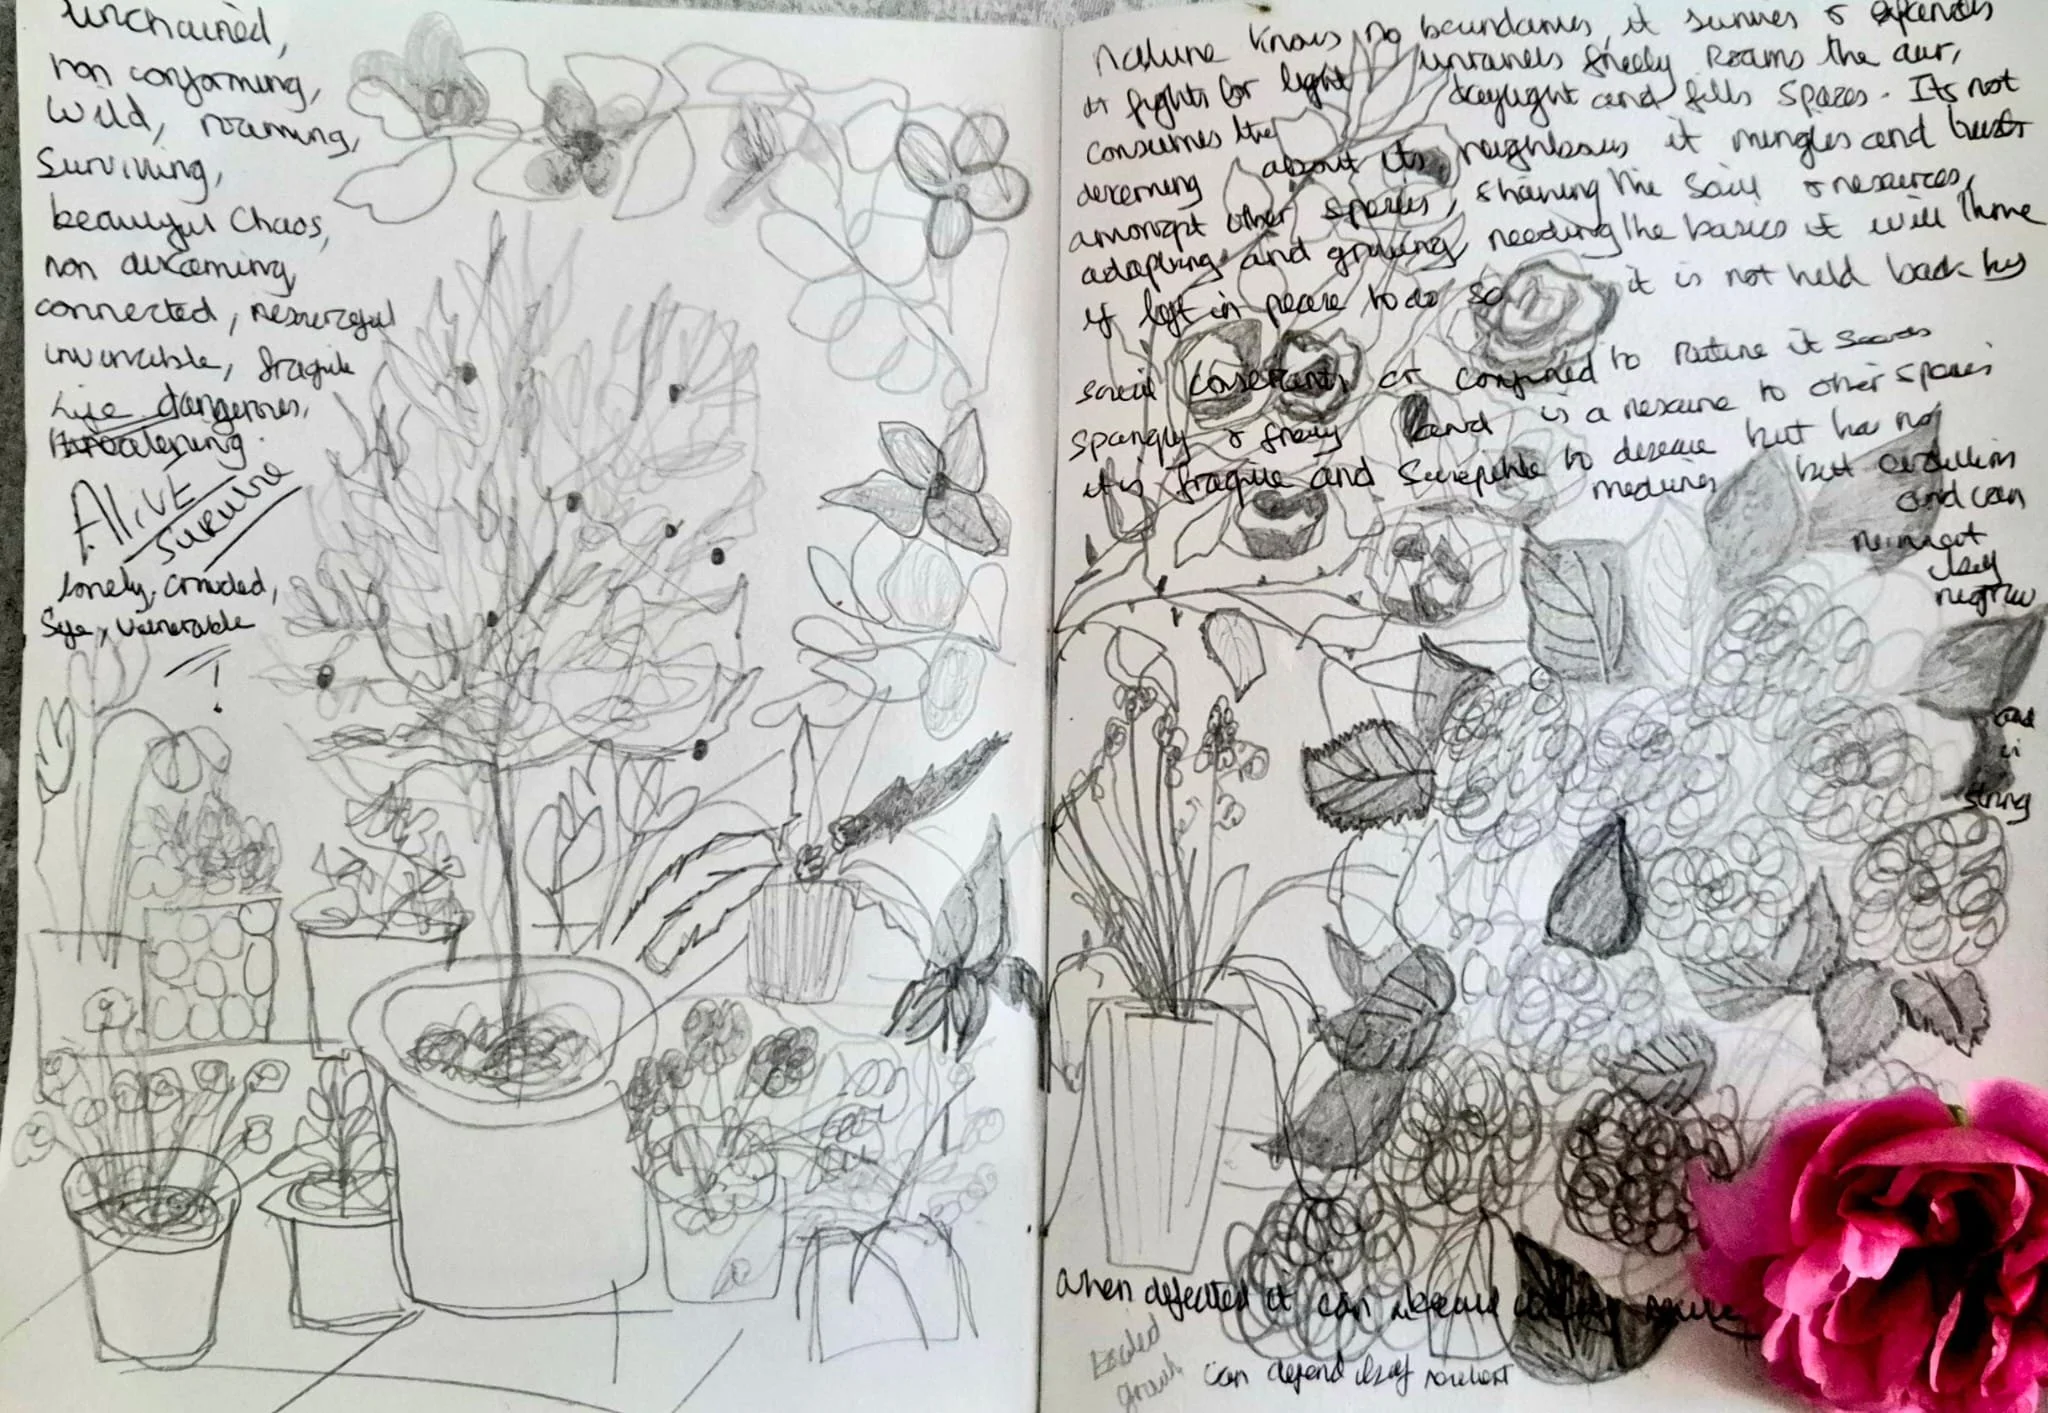 unchained,
non conforming,
Wild, roaming,
Surviving,
beautiful Chaos,
non discerning
connected, resourceful
invincible, fragile
Life dangerous,
threatening.
ALIVE
Survive
lonely, crowded,
Safe, vulnerable
!
Nature knows no boundaries, it survives & expands
it fights for light unravels freely Roams the air,
consumes the daylight and fills spaces. Its not
discerning about its neighbours it mingles and
amongst other species, sharing the soil & resources,
adapting and growing needing the basics it will thrive
if left in peace to do so it is not held back by
social constraints or confined to routine it
& freely and is a rescue to other species
it is fragile and susceptible to disease but has no
medicines but
and can
reinvent
itself
regrow
and
is
strong
When defeated it can
Exaled
Growth
can defend itself